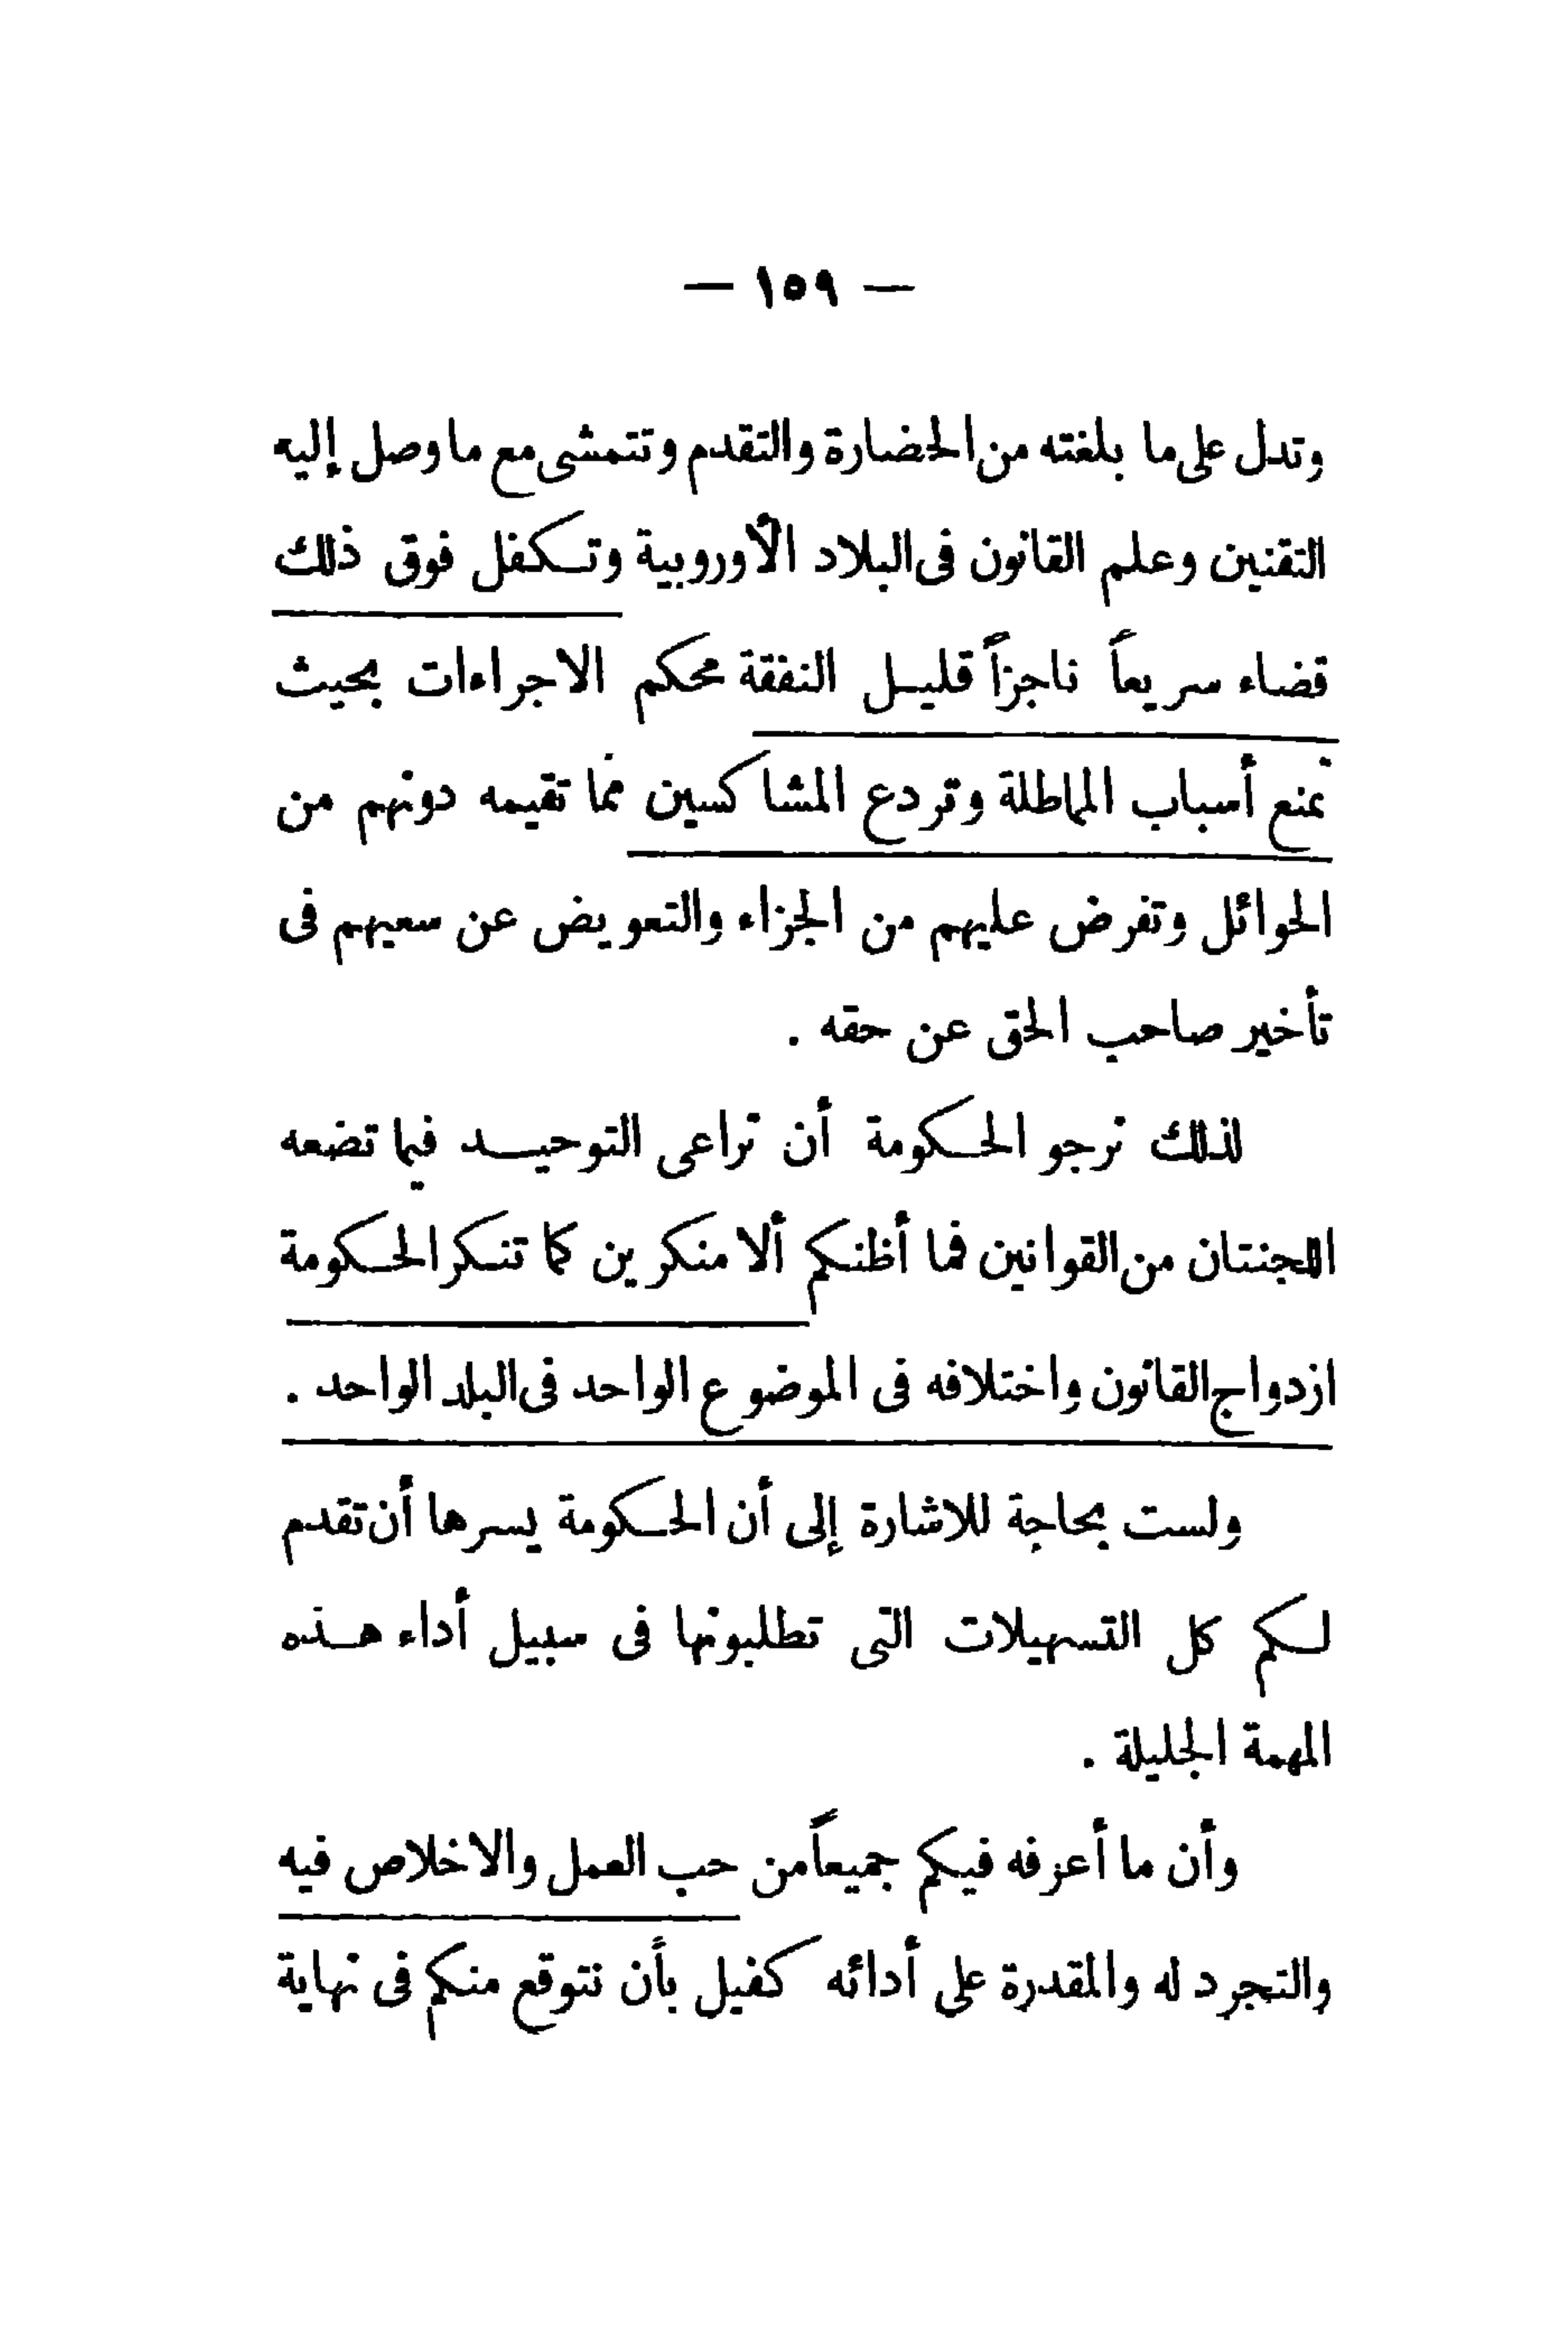 — ١٥٩ —
وتدل على ما بلغته من الحضارة والتقدم وتتمشى مع ما وصل إليه
التقنين وعلم القانون فى البلاد الأوروبية وتكفل فوق ذلك
قضاء سريعاً ناجزاً قليل النفقة محكم الاجراءات بحيث
تمنع أسباب المماطلة وتردع المشاكسين مما تقيمه دونهم من
الحوائل وتفرض عليهم من الجزاء والتعويض عن سعيهم فى
تأخير صاحب الحق عن حقه .
لذلك ترجو الحكومة أن تراعى التوحيد فيما تضعه
اللجنتان من القوانين فما أظنكم ألا منكرين كما تنكر الحكومة
ازدواج القانون واختلافه فى الموضوع الواحد فى البلد الواحد .
ولست بحاجة للاشارة إلى أن الحكومة يسرها أن تقدم
لكم كل التسهيلات التى تطلبونها فى سبيل أداء هذه
المهمة الجليلة .
وأن ما أعرفه فيكم جميعاً من حب العمل والاخلاص فيه
والتجرد له والمقدرة على أدائه كفيل بأن نتوقع منكم فى نهاية